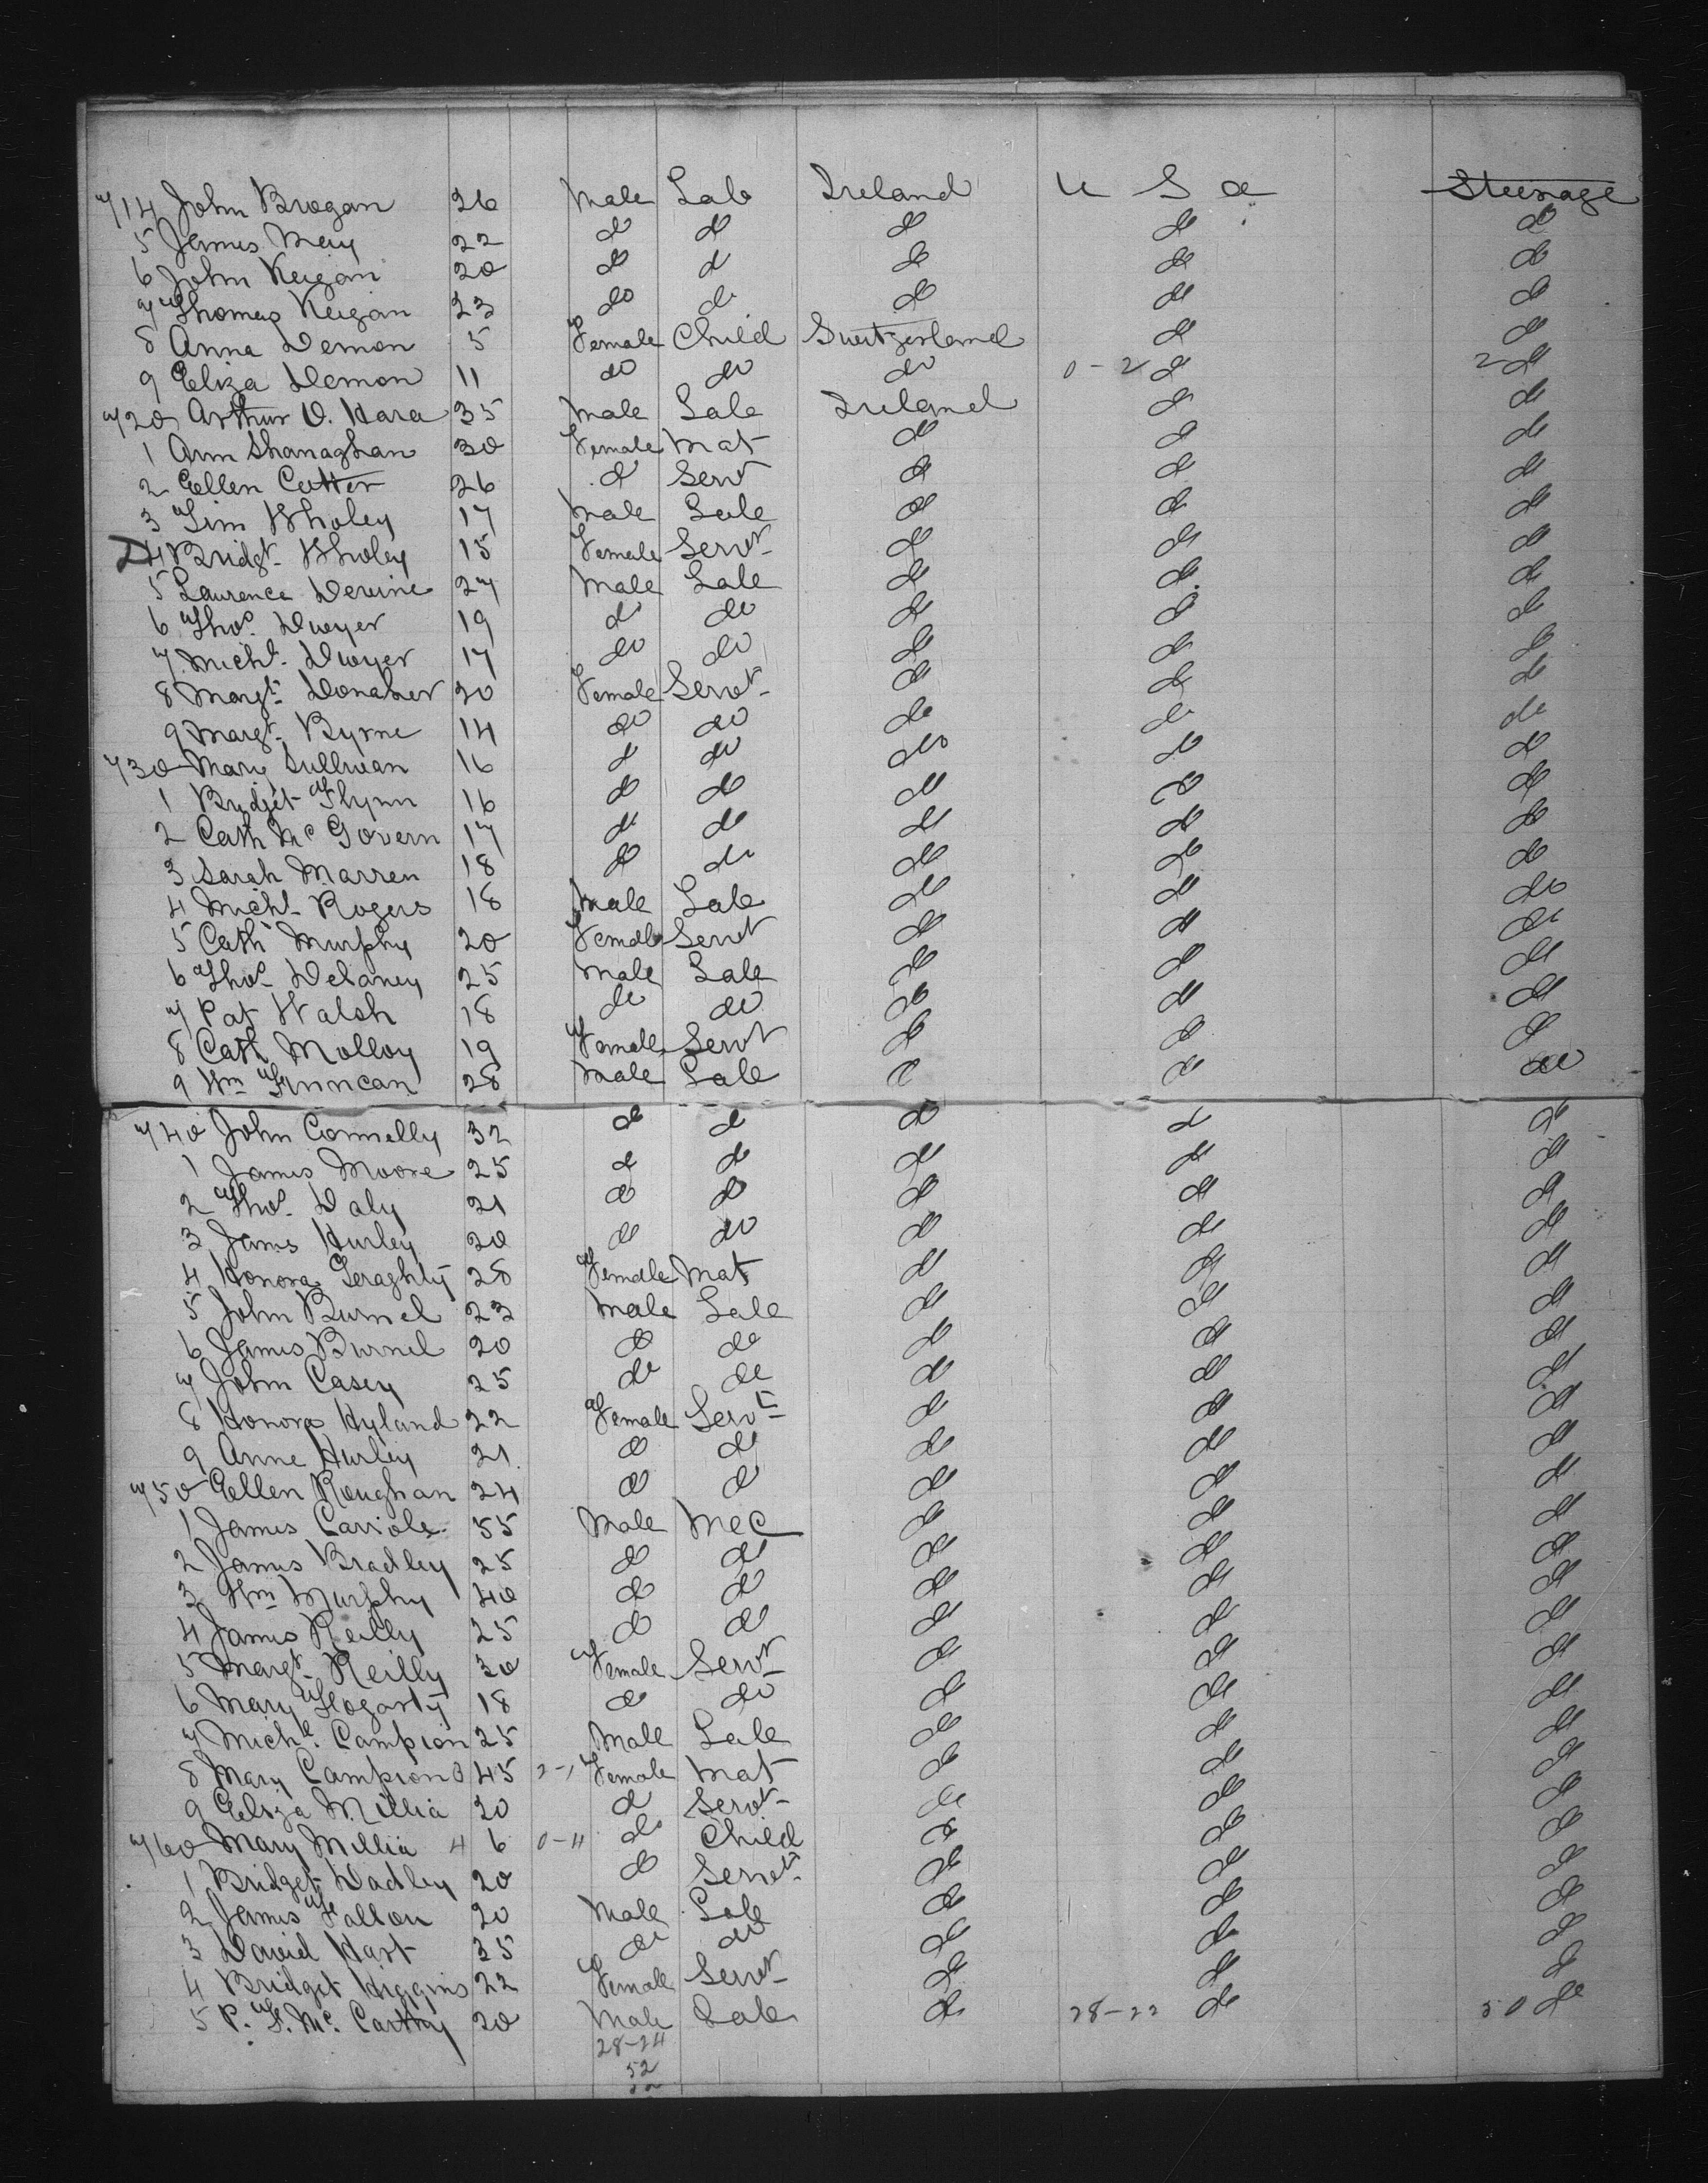 714 John Brogan 26 Male Lab Ireland U S a Steerage
5 James May 22 do do do do do
6 John Keigan 20 do do do do do
7 Thomas Keigan 23 do do do do do
8 Anna Demon 5 Female Child Switzerland do do
9 Eliza Demon 11 do do do 0-2 do 2 do
720 Arthur O. Hara 35 Male Lab Ireland do do
1 Ann Shanaghan 30 Female Mat do do do
2 Ellen Cotter 26 do Servt do do do
3 Tim Wholey 17 Male Lab do do do
24 Bridgt Wholey 15 Female Servt do do do
5 Laurence Devine 27 Male Lab do do do
6 Thos. Dwyer 19 do do do do do
7 Michl. Dwyer 17 do do do do do
8 Margt. Donaher 20 Female Servt do do do
9 Margt. Byrne 14 do do do do do
730 Mary Sullivan 16 do do do do do
1 Bridget Flynn 16 do do do do do
2 Cath Mc Govern 17 do do do do do
3 Sarah Marren 18 do do do do do
4 Michl. Rogers 18 Male Lab do do do
5 Cath Murphy 20 Female Servt do do do
6 Thos. Delaney 25 Male Lab do do do
7 Pat Walsh 18 do do do do do
8 Cath Molloy 19 Female Servt do do do
9 Wm Finncan 28 Male Lab do do do
740 John Connelly 32 do do do do do
1 James Moore 25 do do do do do
2 Thos. Daly 21 do do do do do
3 James Hurley 20 do do do do do
4 Honora Geraghty 28 Female Mat do do do
5 John Burnel 23 Male Lab do do do
6 James Burnel 20 do do do do do
7 John Casey 25 do do do do do
8 Honora Hyland 22 Female Servt do do do
9 Anne Hurley 21 do do do do do
750 Ellen Roughan 24 do do do do do
1 James Carrole 55 Male Mec do do do
2 James Bradley 25 do do do do do
3 Wm Murphy 40 do do do do do
4 James Reilly 25 do do do do do
5 Margt Reilly 30 Female Servt do do do
6 Mary Flogarty 18 do do do do do
7 Michl. Campion 25 Male Lab do do do
8 Mary Campion 45 2-1 Female Mat do do do
9 Eliza Millia 20 do Servt do do do
760 Mary Millia 4 6 0-4 do Child do do do
1 Bridget Dadley 20 do Servt do do do
2 James Fallon 20 Male Lab do do do
3 David Hart 35 do do do do do
4 Bridget Higgins 22 Female Servt do do do
5 P. F. Mc. Carthy 20 Male Lab do 28-22 do 50 do
28-24
52